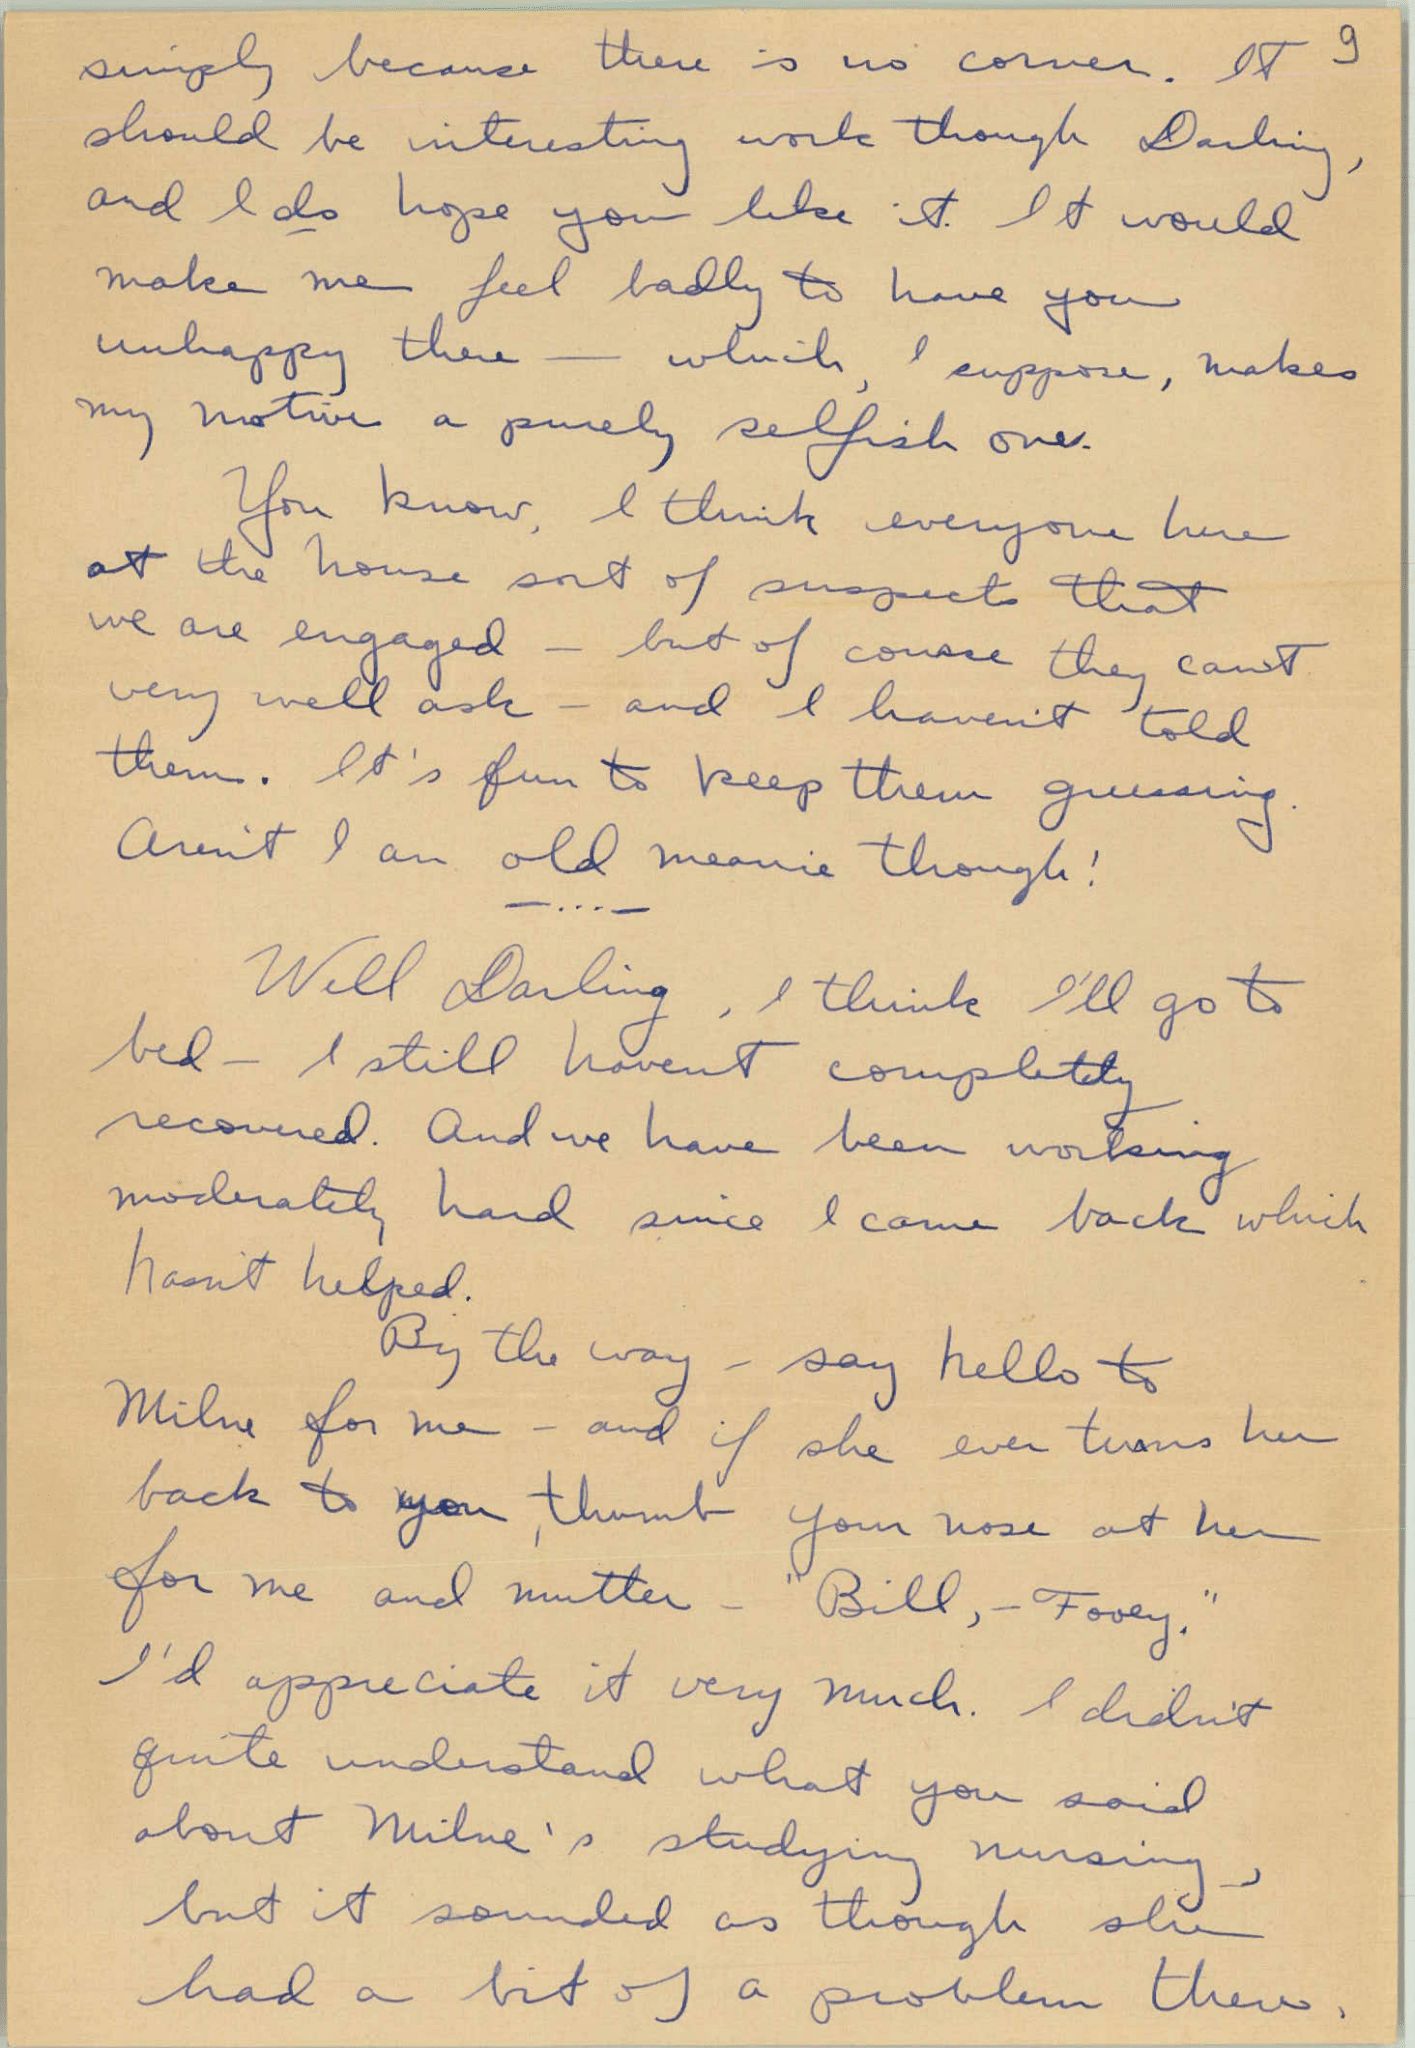 9
simply because there is no corner. It
should be interesting work though Darling,
and I do hope you like it. It would
make me feel badly to have you
unhappy there — which, I suppose, makes
my motive a purely selfish one.
You know, I think everyone here
at the house sort of suspects that
we are engaged – but of course they can't
very well ask – and I haven't told
them. It's fun to keep them guessing.
Aren't I an old meanie though!
— ... —
Well Darling, I think I'll go to
bed – I still haven't completely
recovered. And we have been working
moderately hard since I came back which
hasn't helped.
By the way – say hello to
Milne for me – and if she ever turns her
back to you, thumb your nose at her
for me and mutter – "Bill, – Fooey."
I'd appreciate it very much. I didn't
quite understand what you said
about Milne's studying nursing,
but it sounded as though she
had a bit of a problem there.